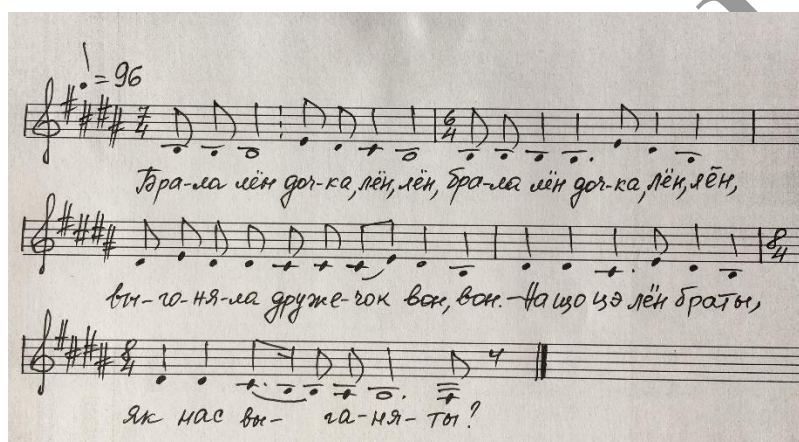 = 96
7/4 6/4
Бра-ла лён доч-ка, лён, лён, бра-ла лён доч-ка, лён, лён,
8/4
вы-го-ня-ла друже-чок вон, вон. – На що цэ лён браты,
8/4
як нас вы- га-ня-ты?